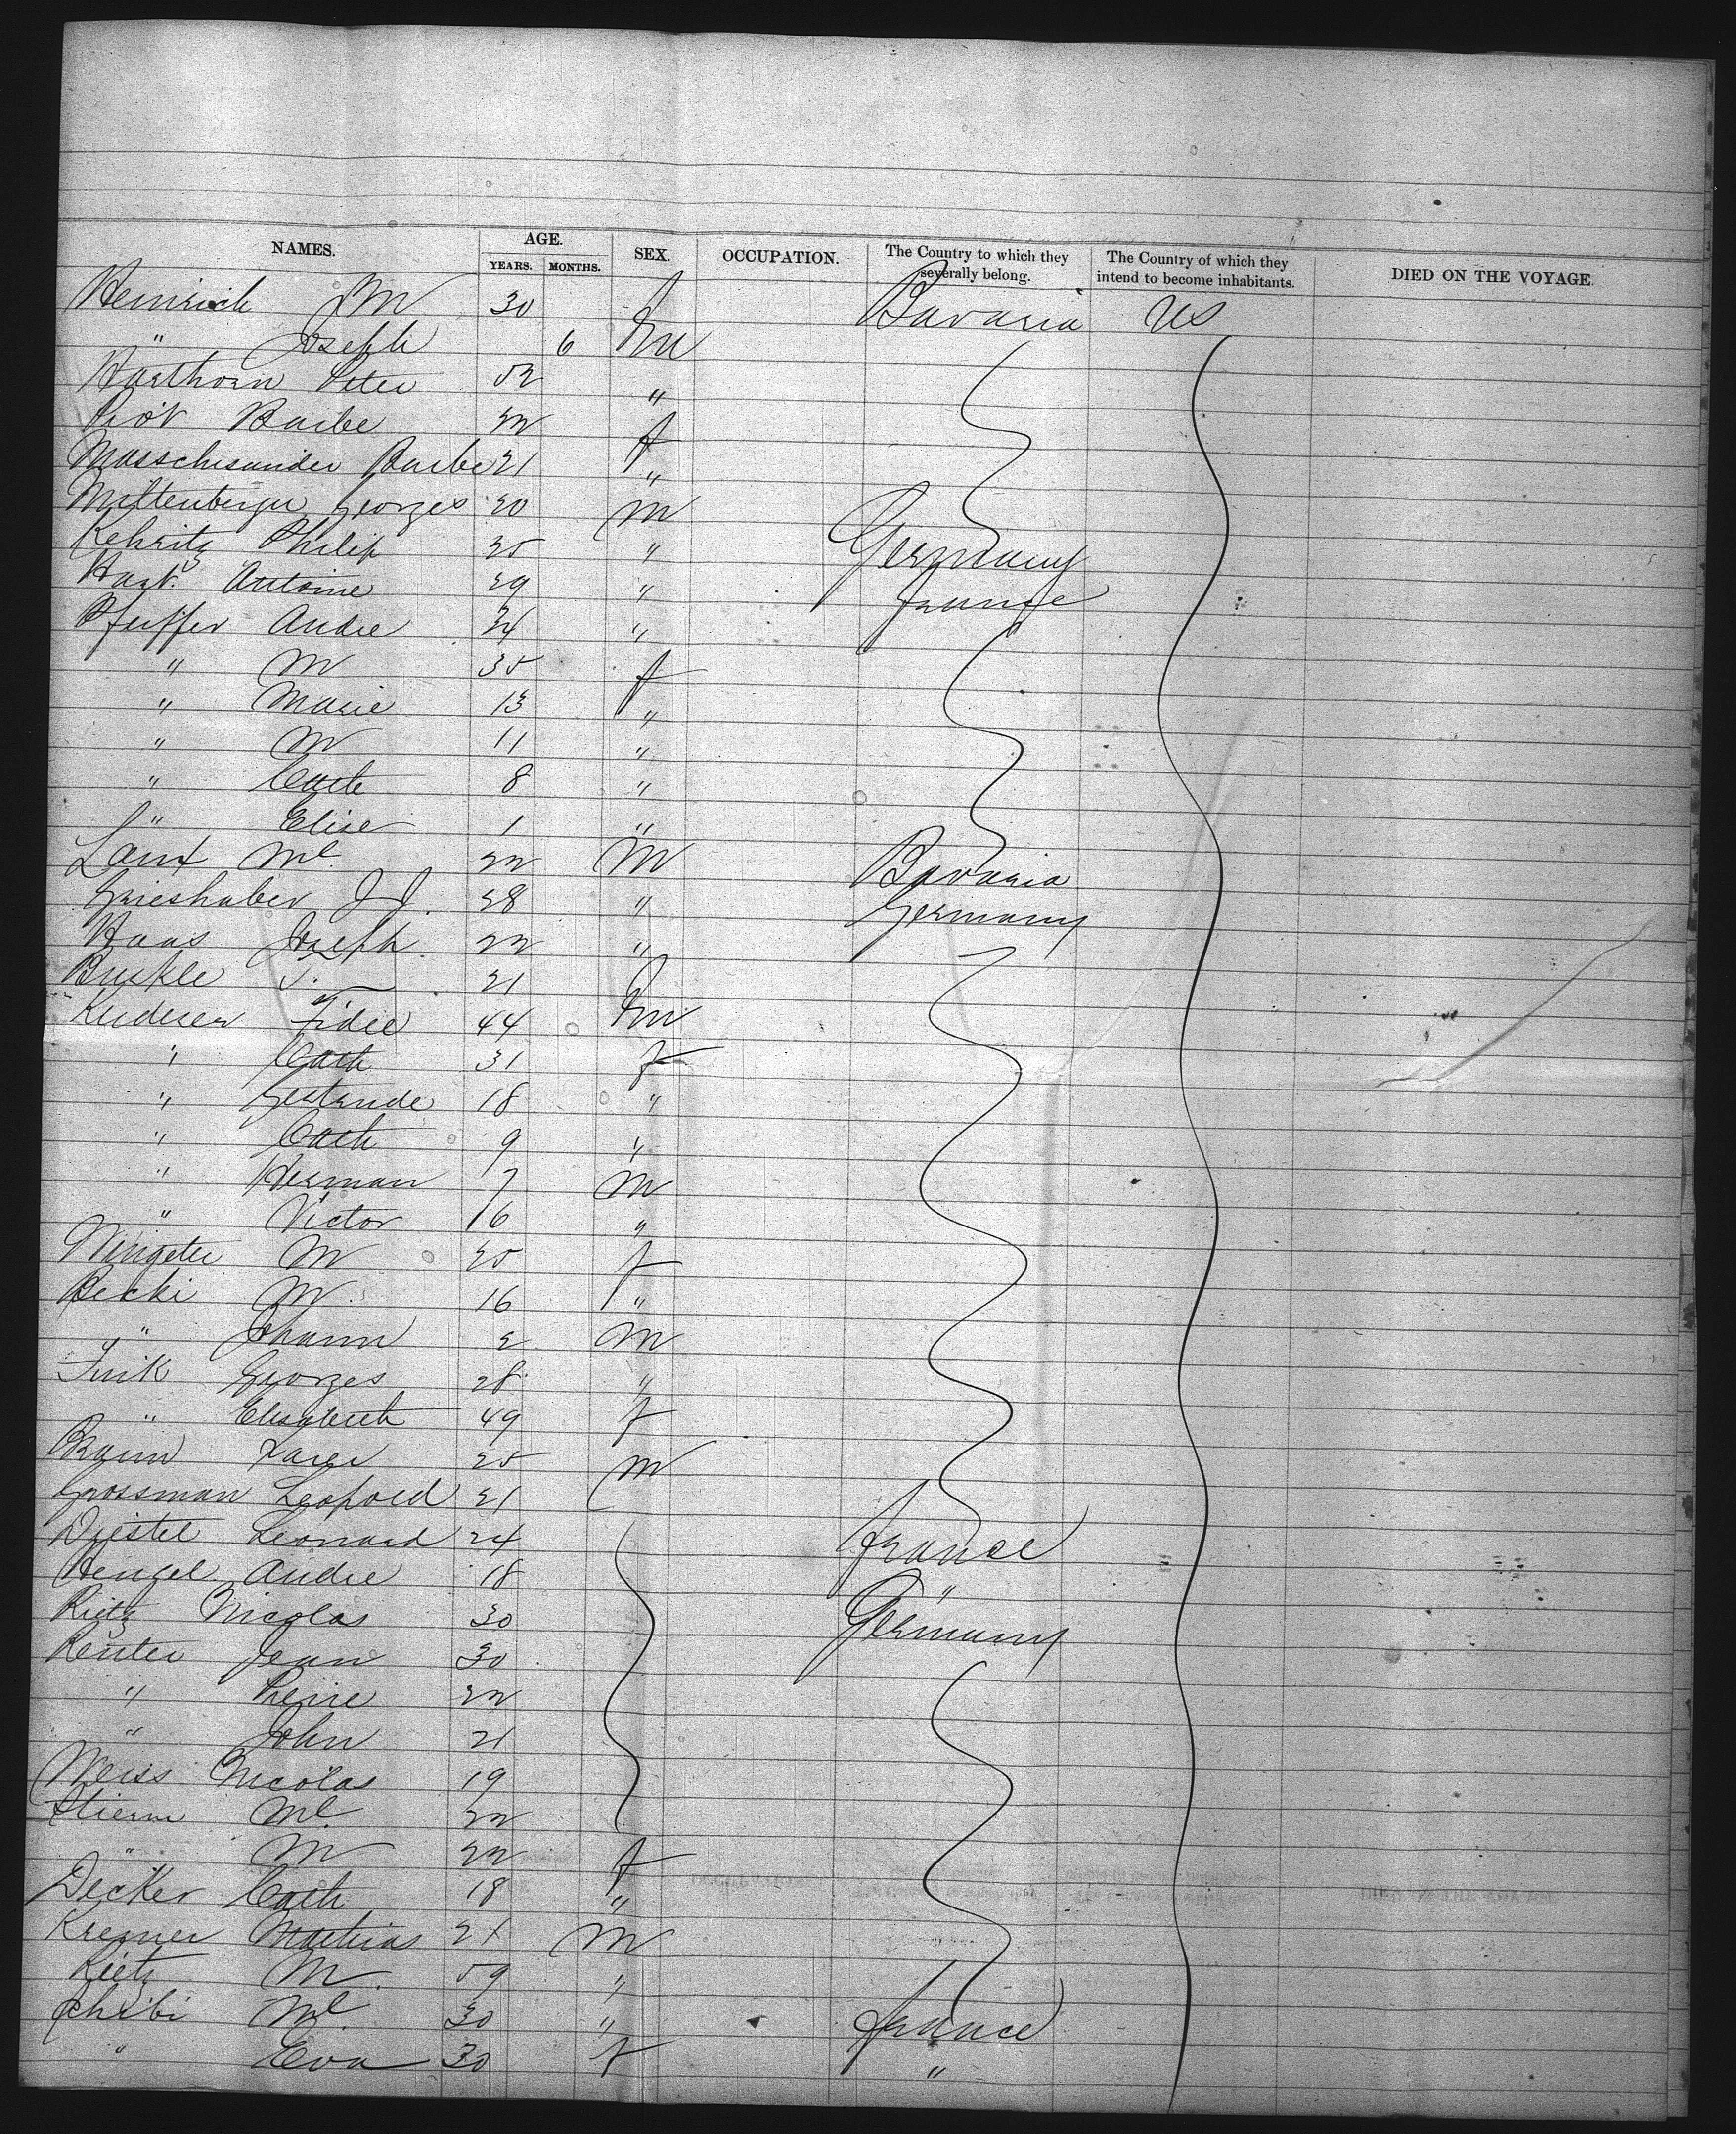 NAMES. AGE. SEX. OCCUPATION. The Country to which they severally belong. The Country of which they intend to become inhabitants. DIED ON THE VOYAGE.
YEARS. MONTHS.
Heinrich M 30 f Bavaria US
" Joseph 6 m
Harthorn Peter 52 "
Barbe 22 f
Barbe 21 "
Mittenberger Georges 20 m
Kehritz Philip 25 " Germany
Hart. Antoine 29 " France
Pfeiffer Andre 34 "
" M 35 f
" Marie 13 "
" M 11 "
" Cath 8 "
" Elise 1 "
Ml. 22 m Bavaria
Grieshaber J J. 28 " Germany
Haas Joseph. 22 "
Burkle 21
Kuderer Fidel 44 m
" Cath 31 f
" Gertrude 18 "
" Cath 9 "
" Herman 7 m
" Victor 16 "
M 25 f
Becki M. 16 "
" Johann 2 m
Georges 28 "
" Elisabeth 49 f
Braun 25 m
Grossman Leopold 21
Leonard 24 France
Hengel Andre 18 "
Rietz Nicolas 30 Germany
Reuter Jean 30
" Pierre 22
" John 21
Weiss Nicolas 19
Ml. 22
" M 22 f
Decker Cath 18 "
Mathias 21 m
Rietz M. 59 "
Ml. 30 " France
" Eva 30 f "